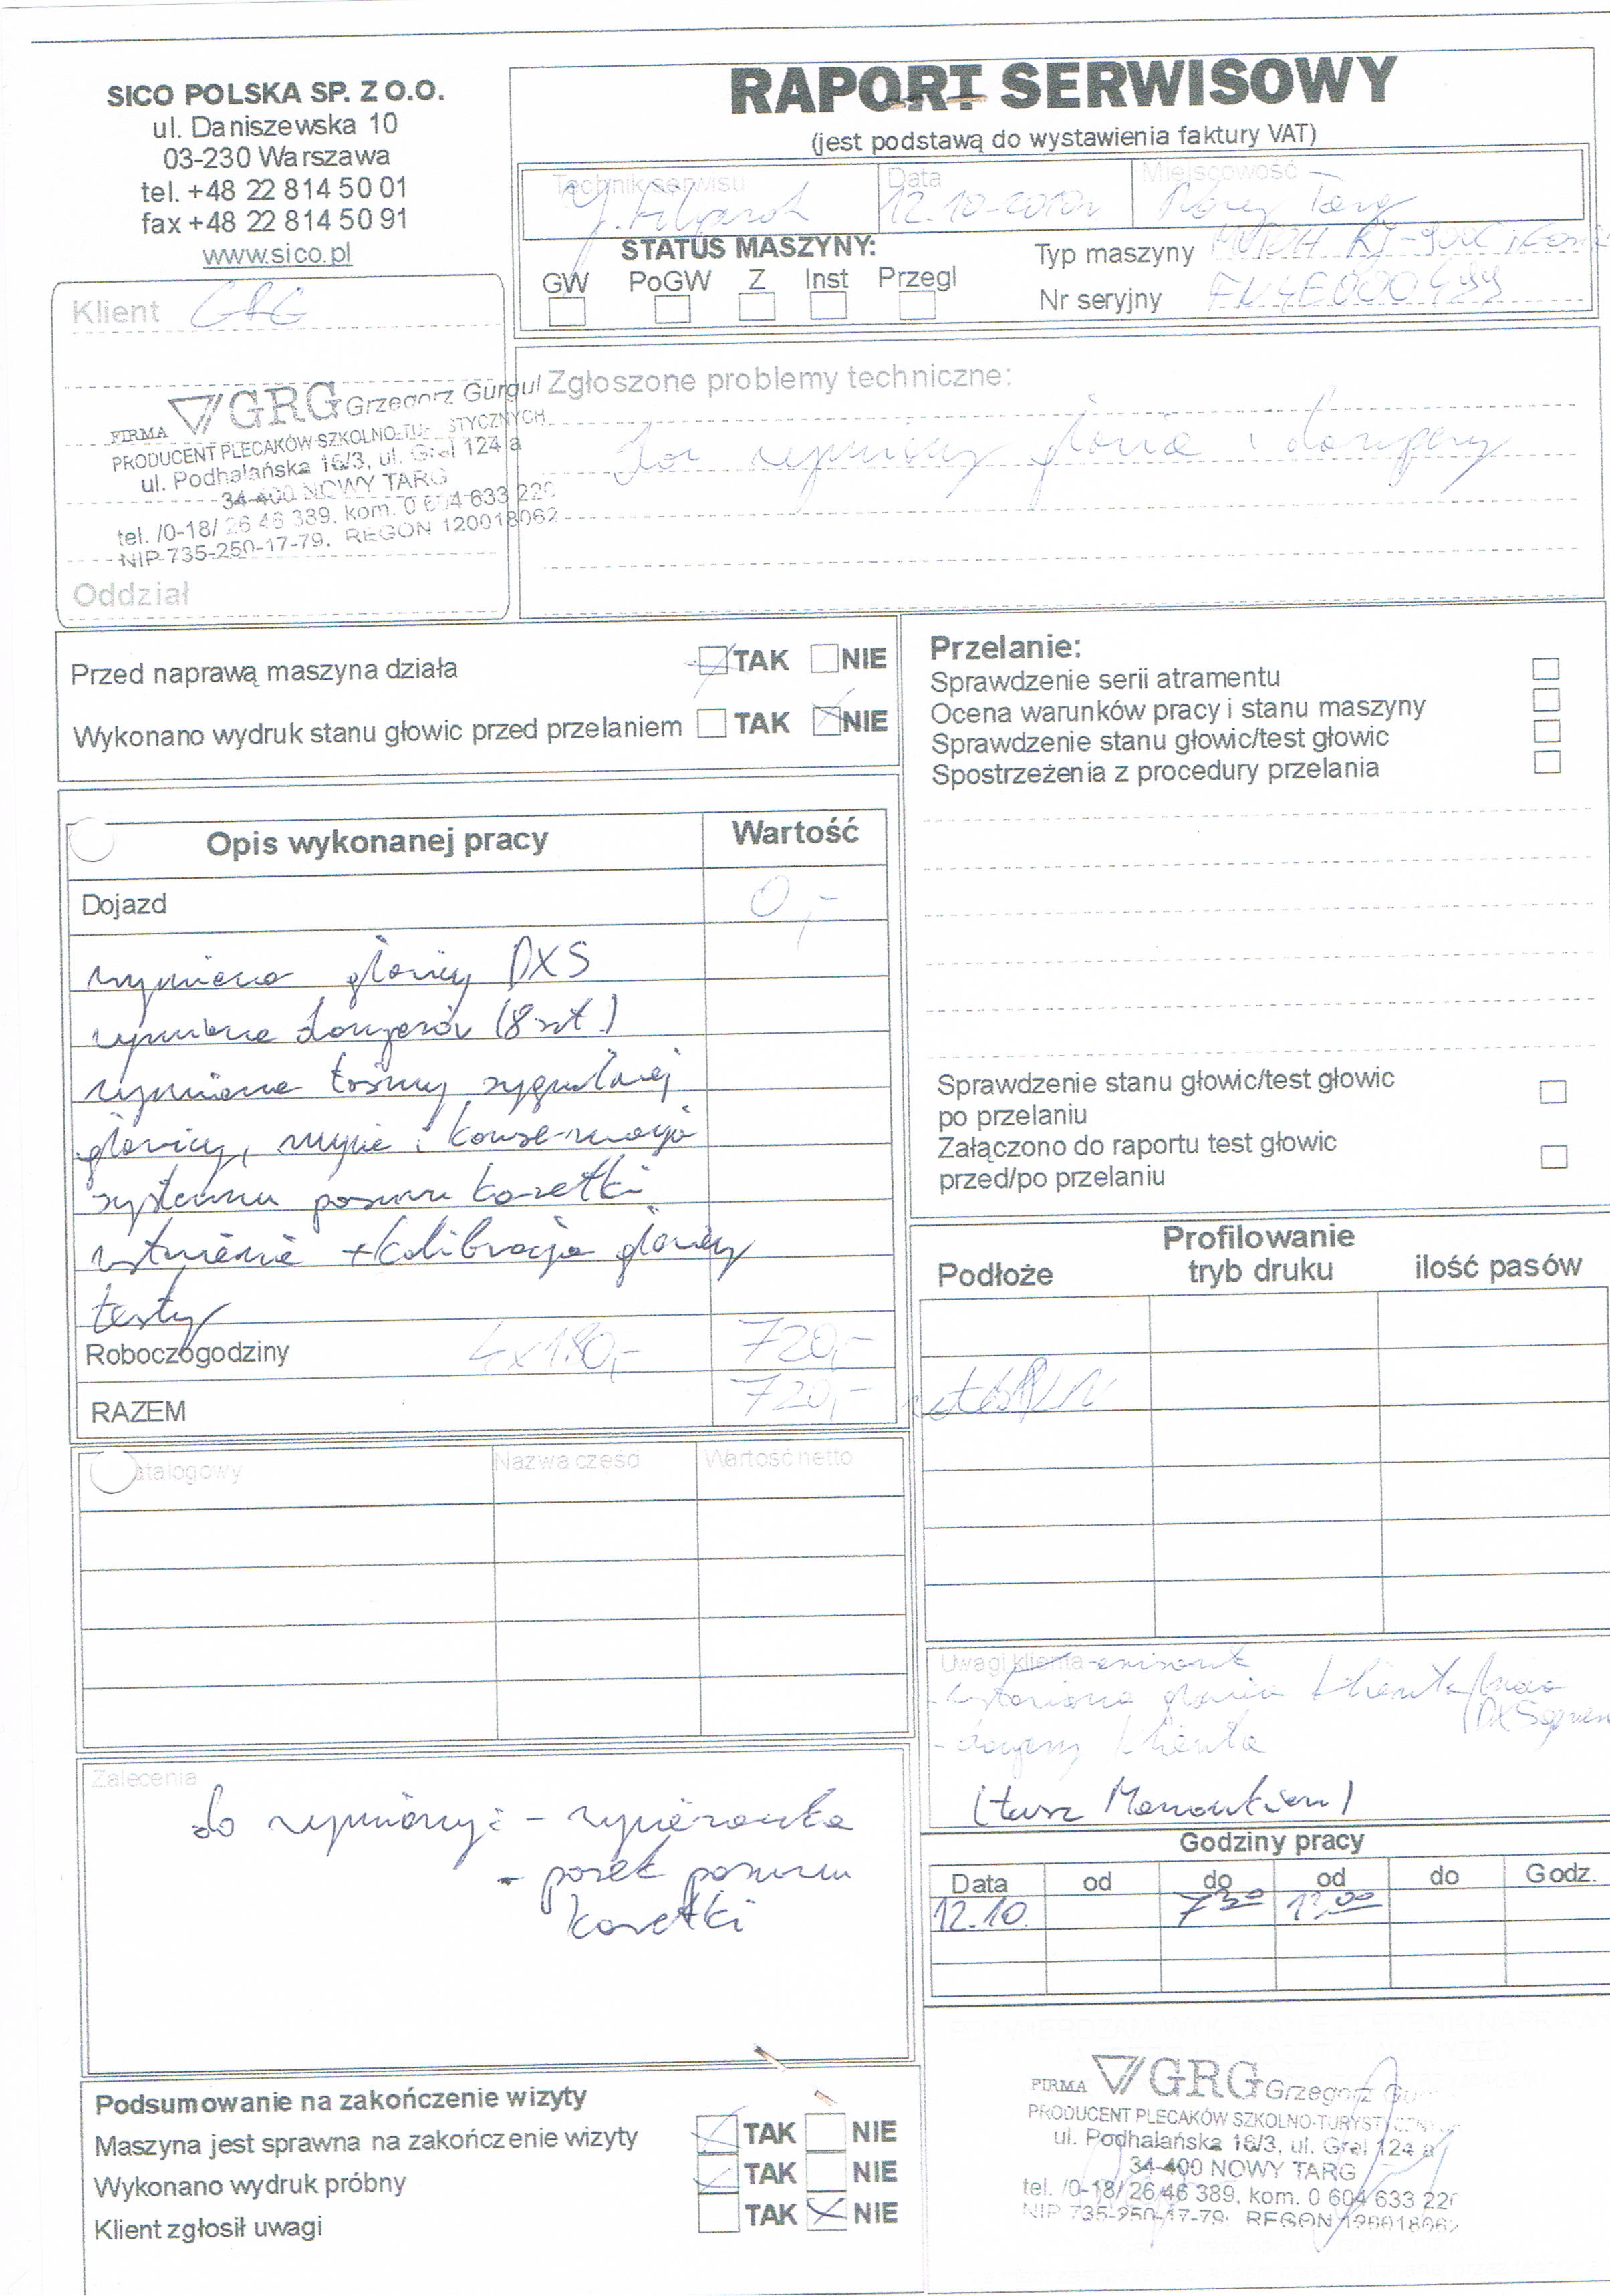 SICO POLSKA SP. Z O.O.
ul. Daniszewska 10
03-230 Warszawa
tel. +48 22 814 50 01
fax +48 22 814 50 91
www.sico.pl
RAPORT SERWISOWY
(jest podstawą do wystawienia faktury VAT)
Technik serwisu
Data
Miejscowość
12.10-2010r
Nowy Targ
STATUS MASZYNY:
GW PoGW Z Inst Przegl
Typ maszyny MUTOH RJ-900C
Nr seryjny
Klient GRG
FIRMA GRG Grzegorz Gurgul
PRODUCENT PLECAKÓW SZKOLNO-TURYSTYCZNYCH
ul. Podhalańska 16/3, ul. Grel 124 a
34-400 NOWY TARG
tel. /0-18/ 26 46 389, kom. 0 604 633 220
NIP 735-250-17-79, REGON 120018062
Oddział
Zgłoszone problemy techniczne:
do wymiany głowica i dampery
Przed naprawą maszyna działa TAK NIE
Wykonano wydruk stanu głowic przed przelaniem TAK NIE
Przelanie:
Sprawdzenie serii atramentu
Ocena warunków pracy i stanu maszyny
Sprawdzenie stanu głowic/test głowic
Spostrzeżenia z procedury przelania
Sprawdzenie stanu głowic/test głowic
po przelaniu
Załączono do raportu test głowic
przed/po przelaniu
Opis wykonanej pracy Wartość
Dojazd 0,-
wymiana głowicy DX5
wymiana damperów (8 szt.)
wymiana taśmy sygnałowej
głowicy, mycie i konserwacja
systemu posuwu karetki
ustawienie + kalibracja głowicy
testy
Roboczogodziny 4x180,- 720,-
RAZEM 720,-
Profilowanie
Podłoże tryb druku ilość pasów
atalogowy Nazwa części Wartość netto
Uwagi klienta
głowica klienta
- dampery klienta
(tusz Marabu
Zalecenia
do wymiany: - wycieraczka
- pasek posuwu
karetki
Godziny pracy
Data od do od do Godz.
12.10. 7 30 13 00
Podsumowanie na zakończenie wizyty
Maszyna jest sprawna na zakończenie wizyty TAK NIE
Wykonano wydruk próbny TAK NIE
Klient zgłosił uwagi TAK NIE
FIRMA GRG Grzegorz
PRODUCENT PLECAKÓW SZKOLNO-TURYSTYCZNYCH
ul. Podhalańska 16/3, ul. Grel 124 a
34-400 NOWY TARG
tel. /0-18/ 26 46 389, kom. 0 604 633 220
NIP 735-250-17-79, REGON 120018062